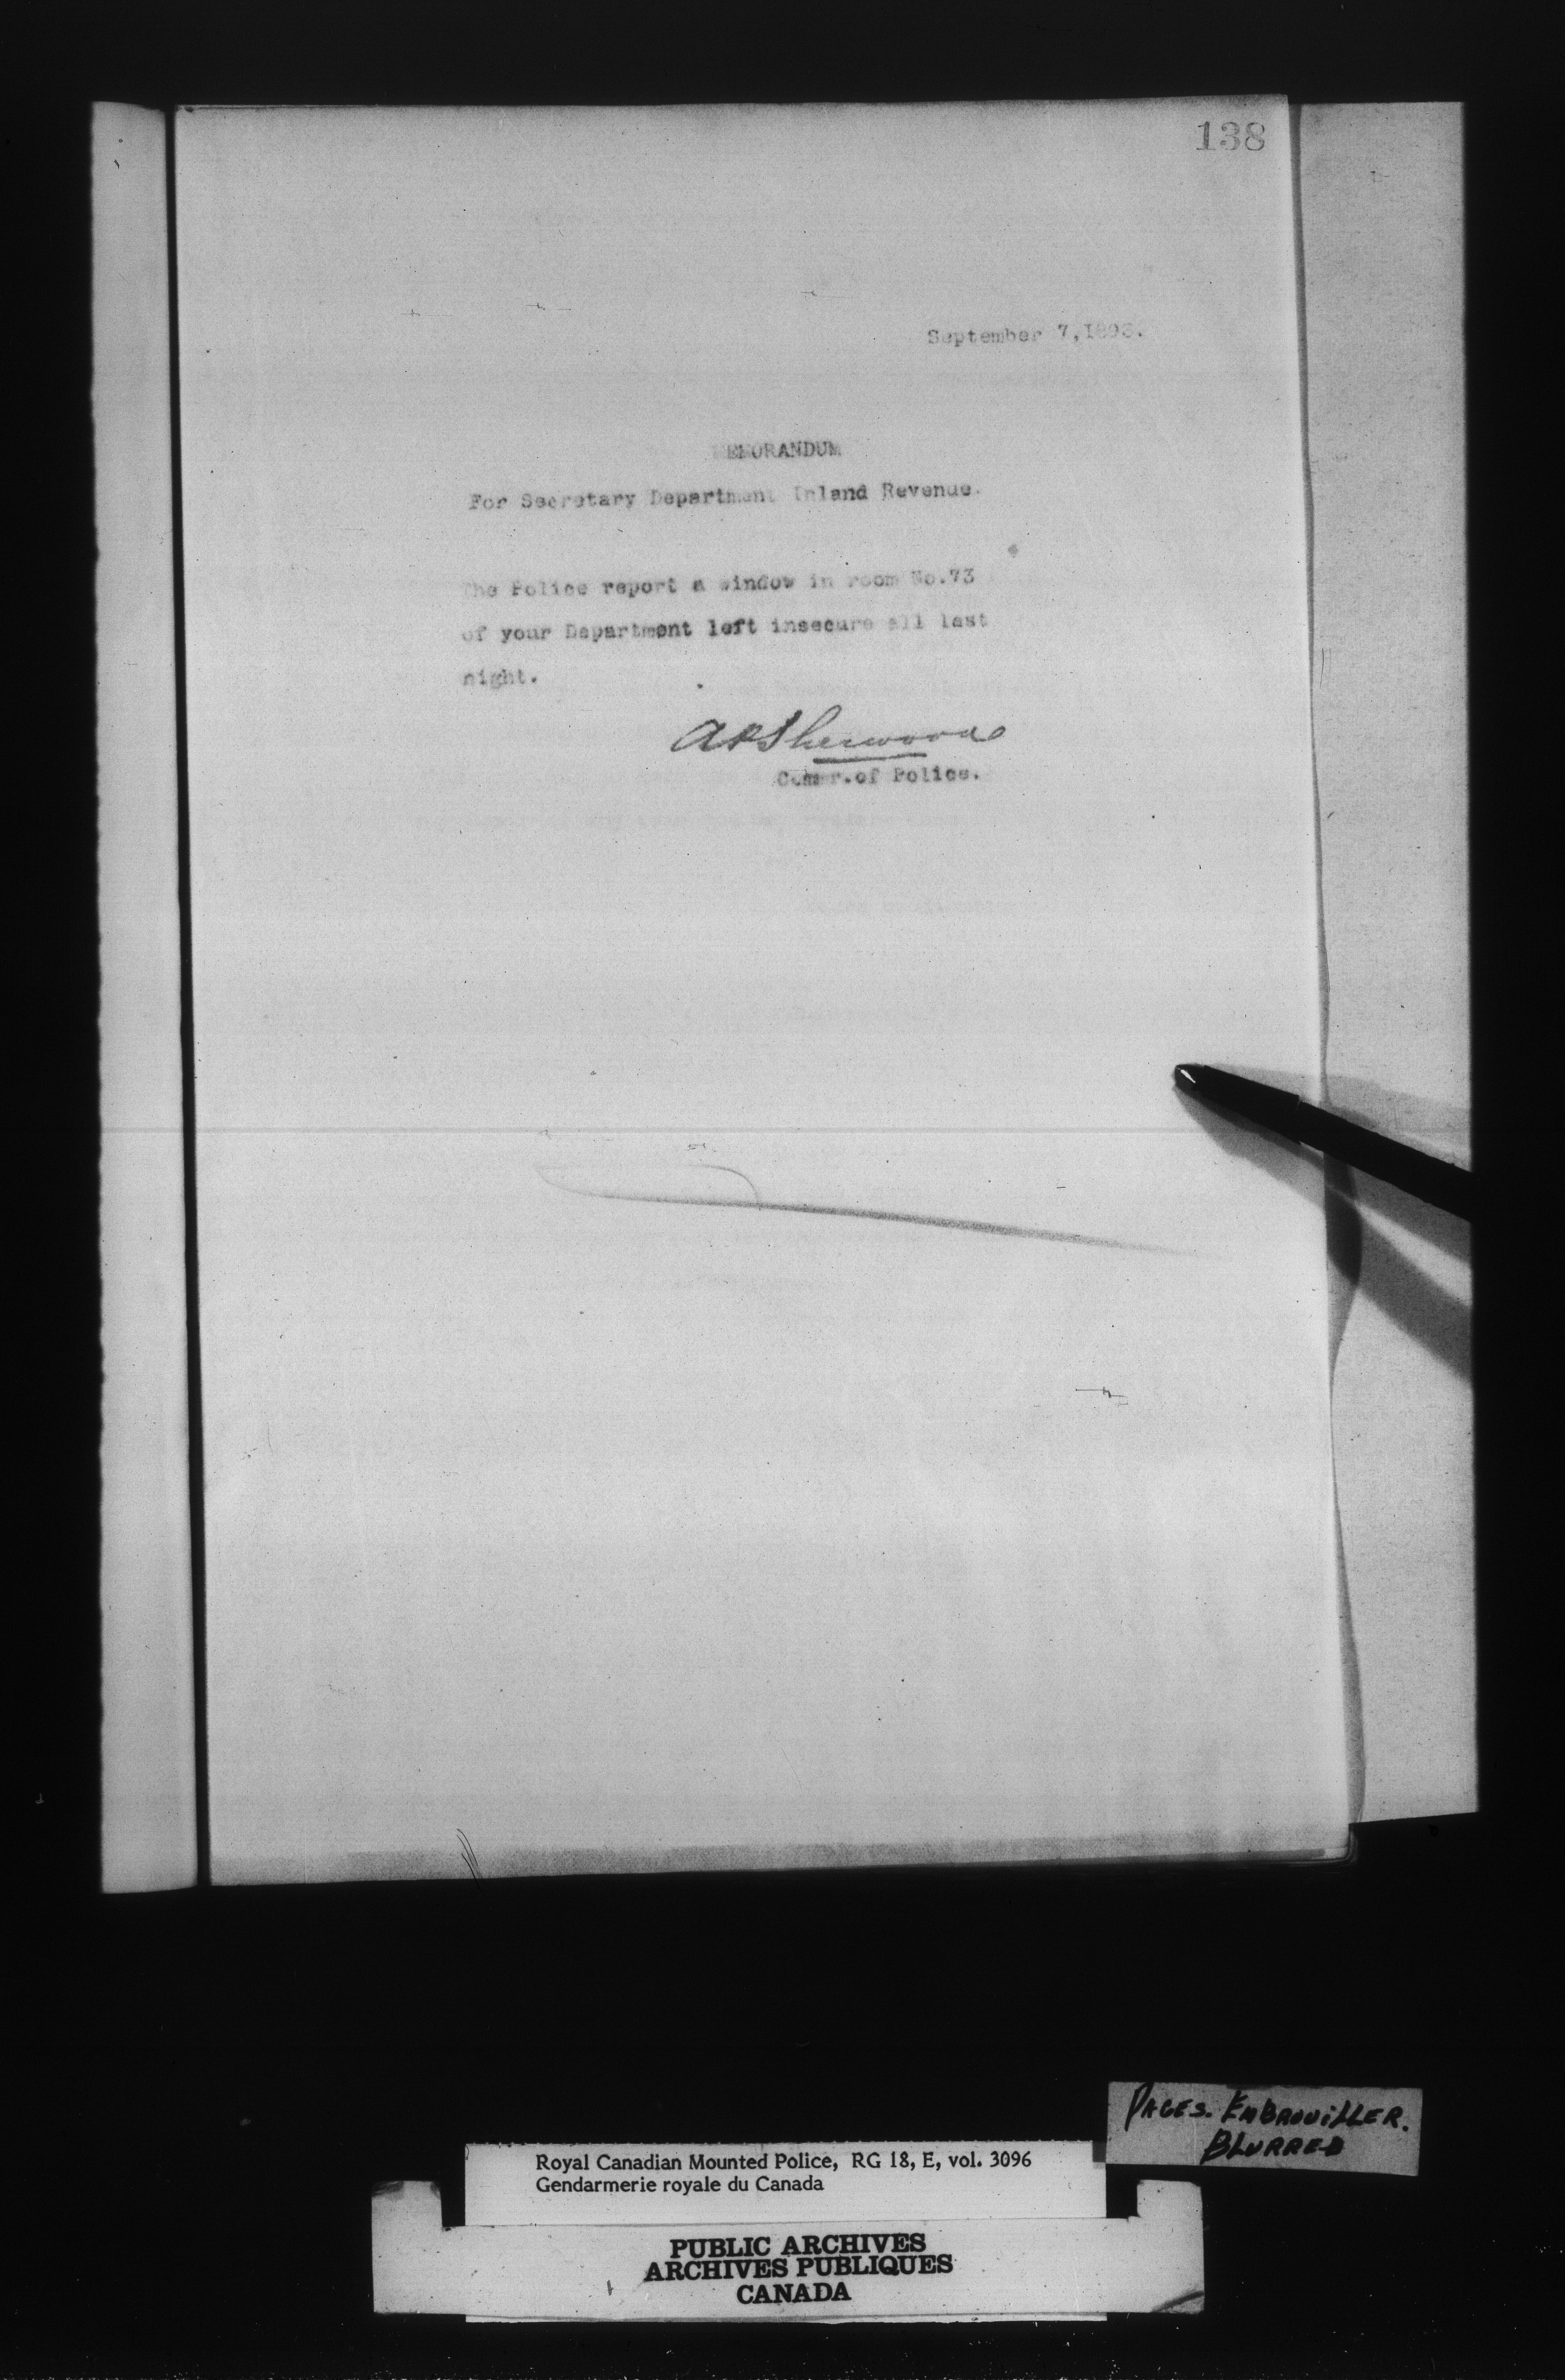 138
September 7, 1893.
MEMORANDUM
For Secretary Department Inland Revenue.
The Police report a window in room No.73
of your Department left insecure all last
night.
A P Sherwood
Commr. of Police.
PAGES. EMBROUILLER.
BLURRED
Royal Canadian Mounted Police, RG 18, E, vol. 3096
Gendarmerie royale du Canada
PUBLIC ARCHIVES
ARCHIVES PUBLIQUES
CANADA